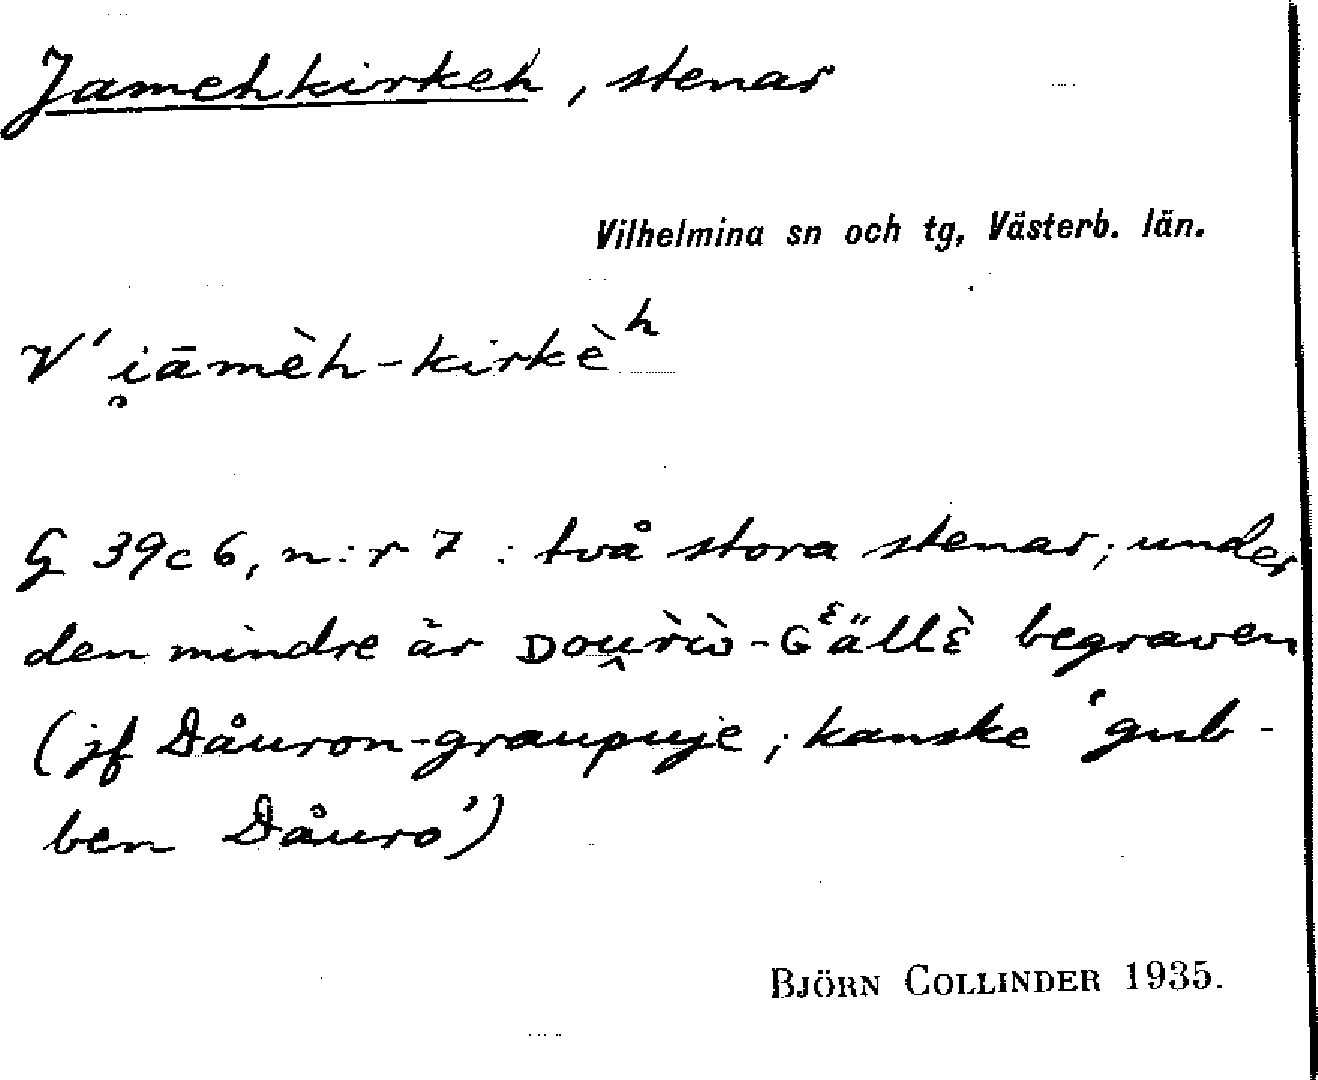 Jamehkirkeh, stenar
Vilhelmina sn och tg, Västerb. län.
V' i̯āmèh-kirkèʰ
G 39c6, n:r 7 : två stora stenar; under
den mindre är ᴅou̯r̀ẁ-Gᵋällὲ begraven
(jf Dåuron-graupuje; kanske 'gub-
ben Dåuro')
BJÖRN COLLINDER 1935.